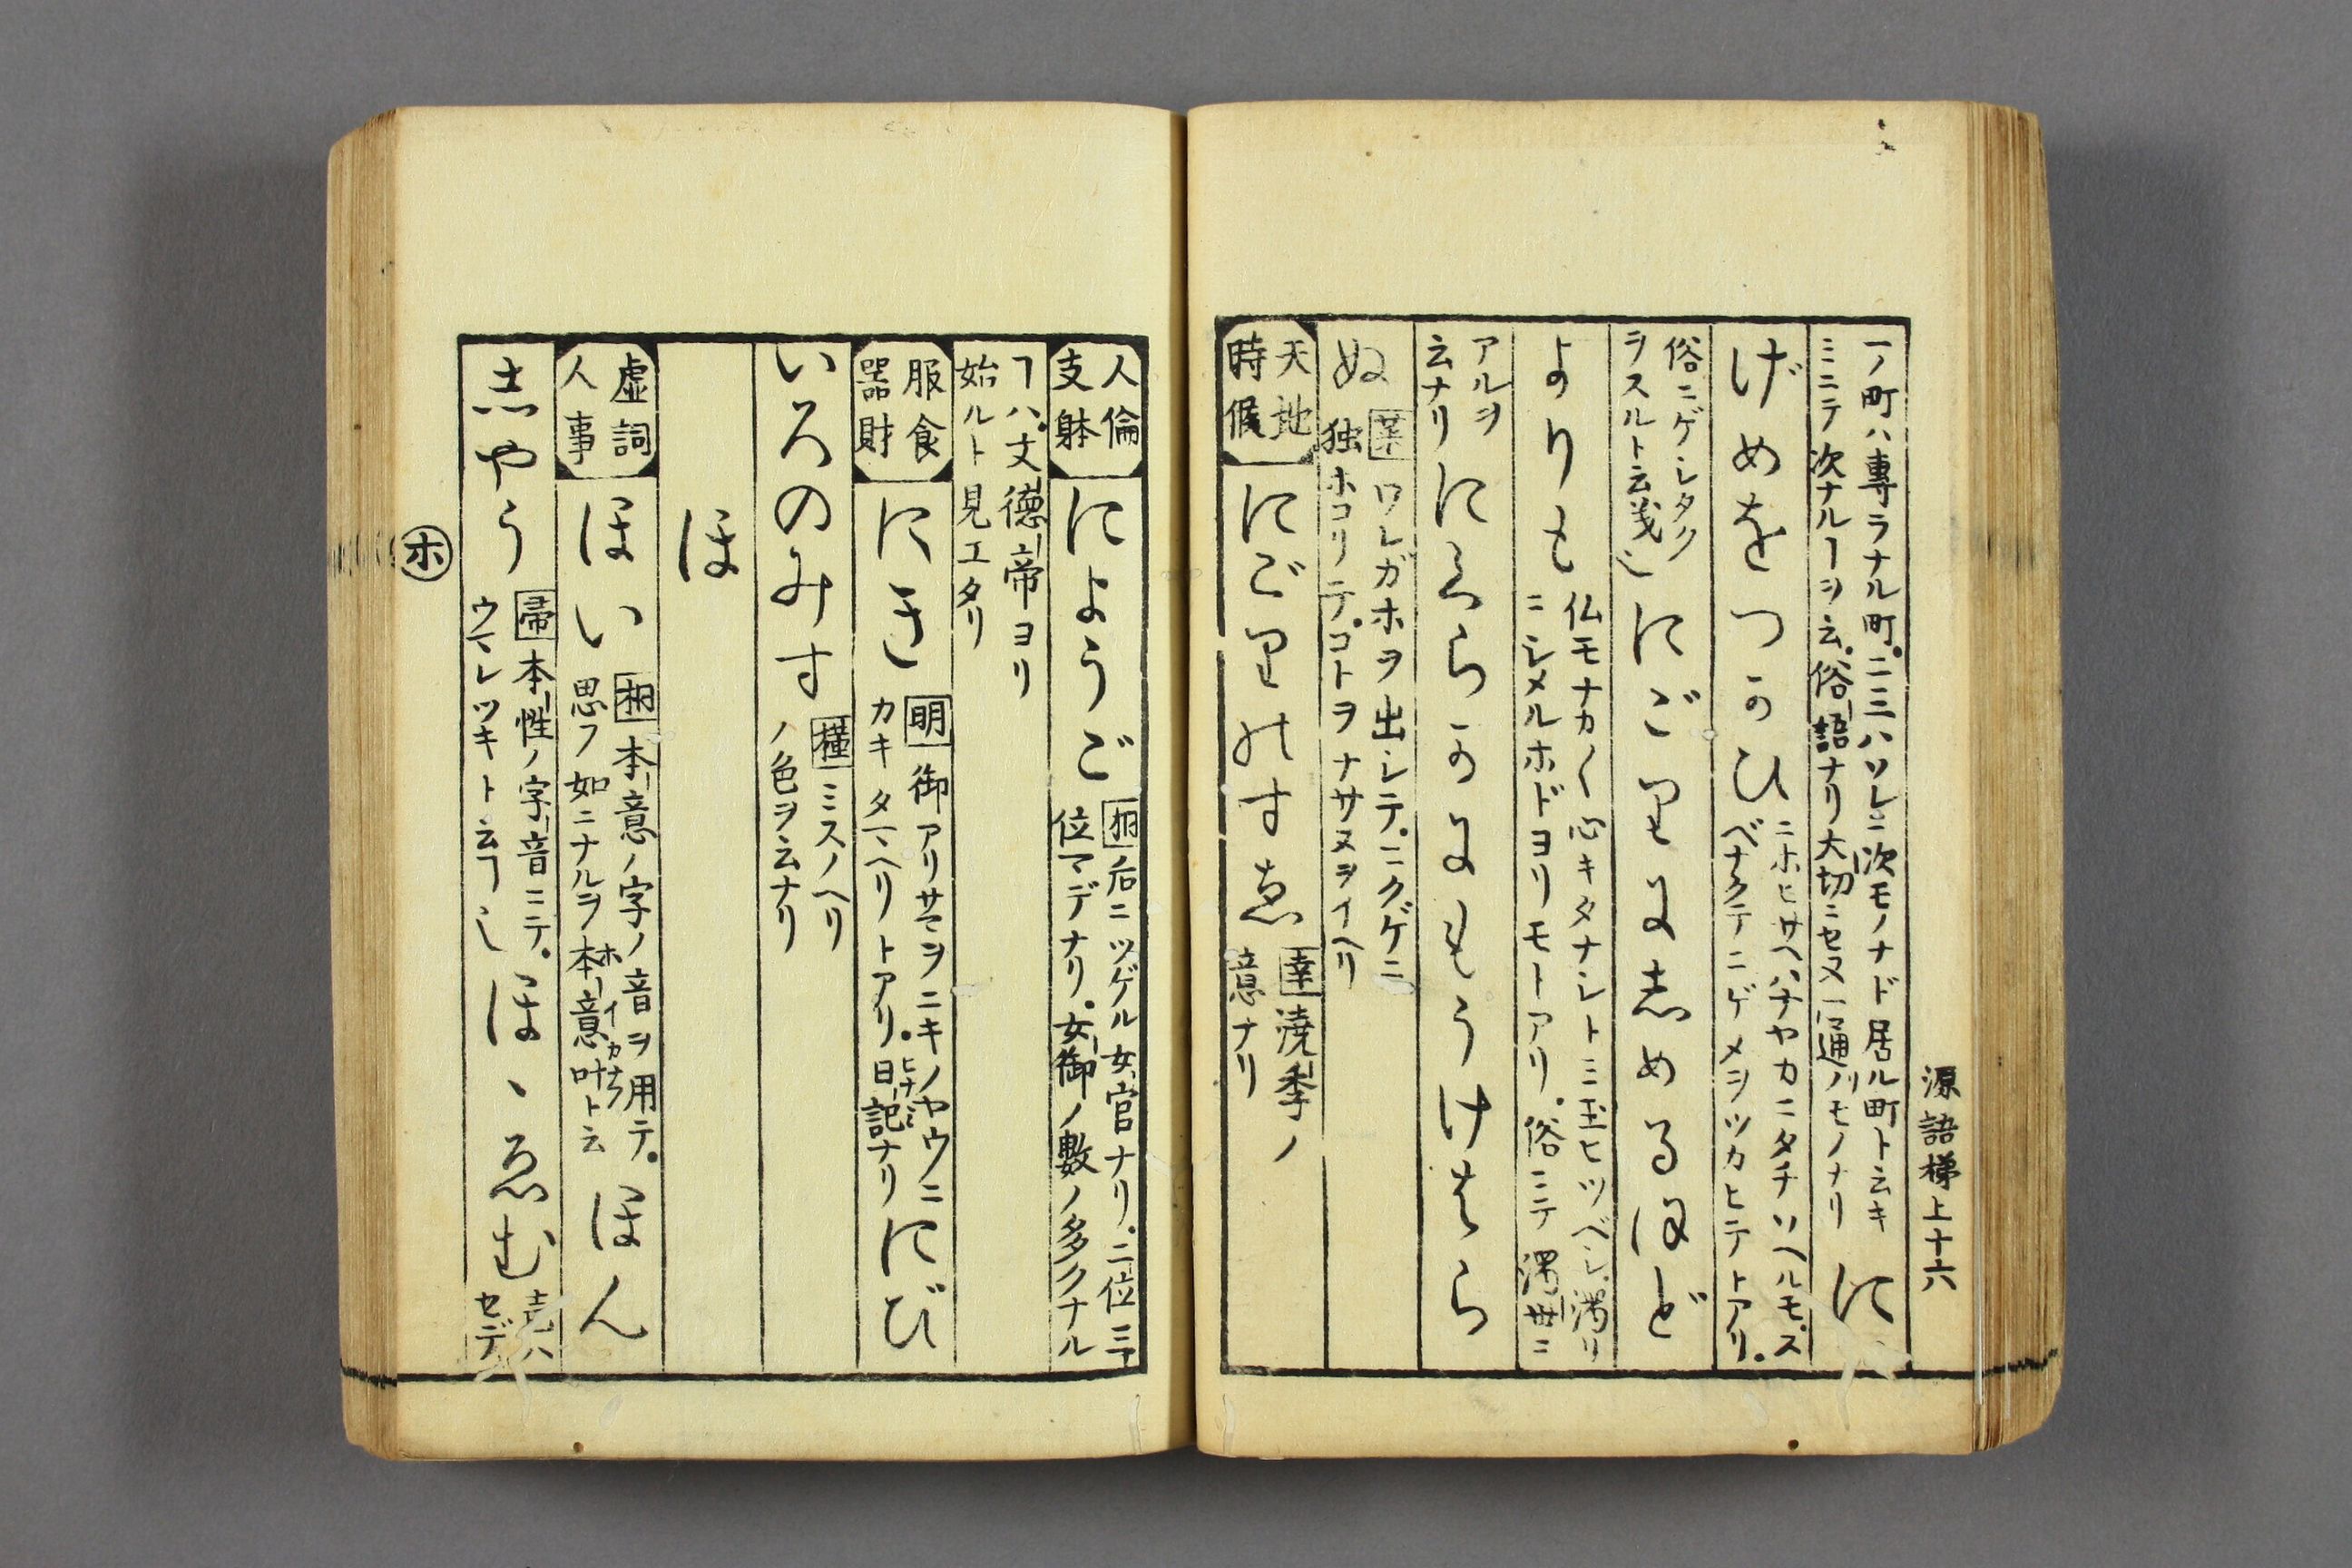 源語梯上十六
一ノ町ハ專ラナル町。二三ハソレニ次モノナド居ル町ト云キ
ミニテ次ナルヿヲ云。俗語ナリ大切ニセヌ一ト通ノモノナリ
に
げめをつかひ
ニホヒサヘハナヤカニタチソヘルモ。ス
ベナクテニゲメヲツカヒテトアリ。
俗ニゲシタク
ヲスルト云義也
にごりにしめるほど
よりも
仏モナカ〱心キタナシトミ玉ヒツベシ。濁リ
ニシメルホドヨリモトアリ。俗ニテ濁世ニ
アルヲ
云ナリ
にくらかにもうけはら
ぬ
葉
ワレガホヲ出シテ。ニクゲニ
独ホコリテ。コトヲナサヌヲイヘリ
天地
時候
にごりのすゑ
幸
澆季ノ
意ナリ
人倫
支躰
にようご
桐
后ニツゲル女官ナリ。二位三
位マデナリ。女御ノ數ノ多クナル
ヿハ。文徳帝ヨリ
始ルト見エタリ
服食
器財
にき
明
御アリサマヲニキノヤウニ
カキタマヘリトアリ。日記ナリ
にび
いろのみす
槿
ミスノヘリ
ノ色ヲ云ナリ
ほ
虚詞
人事
ほい
桐
本意ノ字ノ音ヲ用テ。
思フ如ニナルヲ本意叶ト云
ほん
志やう
帚
本性ノ字音ニテ。
ウマレツキト云ヿ也
ほゝゑむ
セデ
ホ